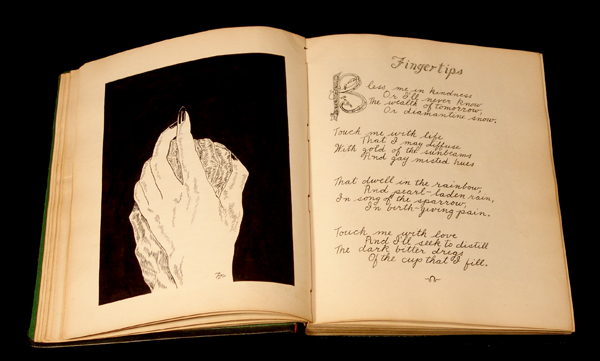 Fingertips
Bless me in kindness
Or I'll never know
The wealth of tomorrow,
Or diamantine snow;
Touch me with life
That I may diffuse
With gold of the sunbeams
And gay misted hues
That dwell in the rainbow,
And pearl-laden rain,
In song of the sparrow,
In birth-giving pain.
Touch me with love
And I'll seek to distill
The dark bitter dregs
Of the cup that I fill.